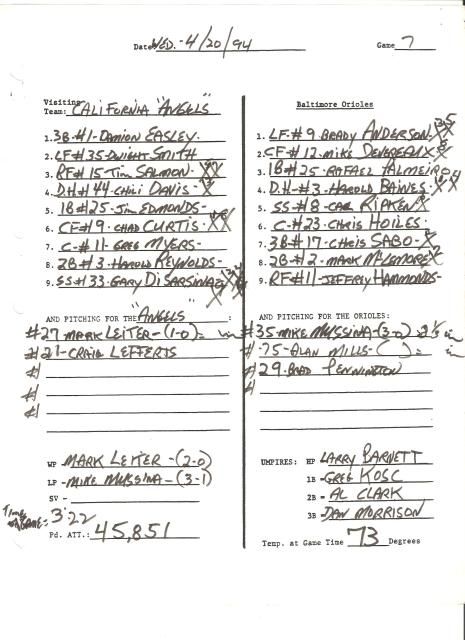 Date WED. - 4/20/94
Game 7
Visiting
Team: CALIFORNIA "ANGELS"
1. 3B #1 - DAMION EASLEY.
2. LF #35 - DWIGHT SMITH
3. RF #15 - TIM SALMON.
4. D.H #44 CHILI DAVIS -
5. 1B #25 - JIM EDMONDS -
6. CF #9 - CHAD CURTIS -
7. C - #11 - GREG MYERS -
8. 2B #3 - HAROLD REYNOLDS -
9. SS #33 - GARY DISARSINA
AND PITCHING FOR THE "ANGELS":
#27 - MARK LEITER - (1-0) = in
#21 - CRAIG LEFFERTS
#
#
#
WP - MARK LEITER - (2-0)
LP - MIKE MUSSINA - (3-1)
SV -
Time of GAME = 3:22
Pd. ATT.: 45,851
Baltimore Orioles
1. LF #9 BRADY ANDERSON - 35
2. CF #12 - MIKE DEVEREAUX
3. 1B #25 - RAFAEL PALMEIRO
4. D.H - #3 - HAROLD BAINES -
5. SS #8 - CAL RIPKEN -
6. C - #23 - CHRIS HOILES -
7. 3B #17 - CHRIS SABO -
8. 2B #2 - MARK McLEMORE
9. RF #11 - JEFFREY HAMMONDS -
AND PITCHING FOR THE ORIOLES:
#35 - MIKE MUSSINA - (3-0) 2 1/3 in
#75 - ALAN MILLS - ( ) = in
#29 - BRAD PENNINGTON
#
UMPIRES: HP LARRY BARNETT
1B - GREG KOSC
2B - AL CLARK
3B DAN MORRISON
Temp. at Game Time 73 Degrees